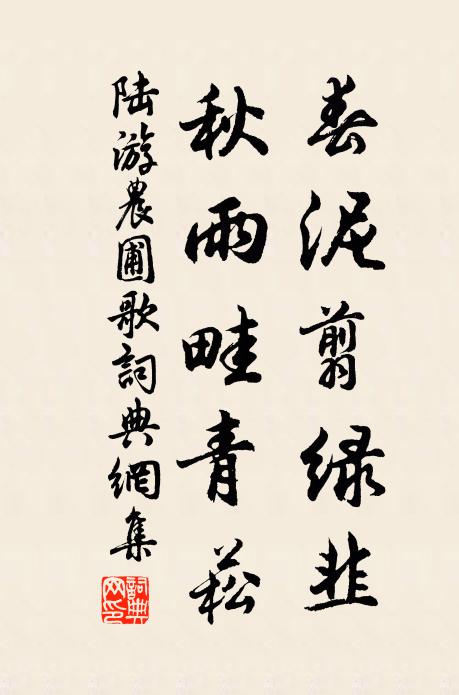 春泥剪綠韭
秋雨畦青菘
陸游農圃歌詞典網集
詞典網印